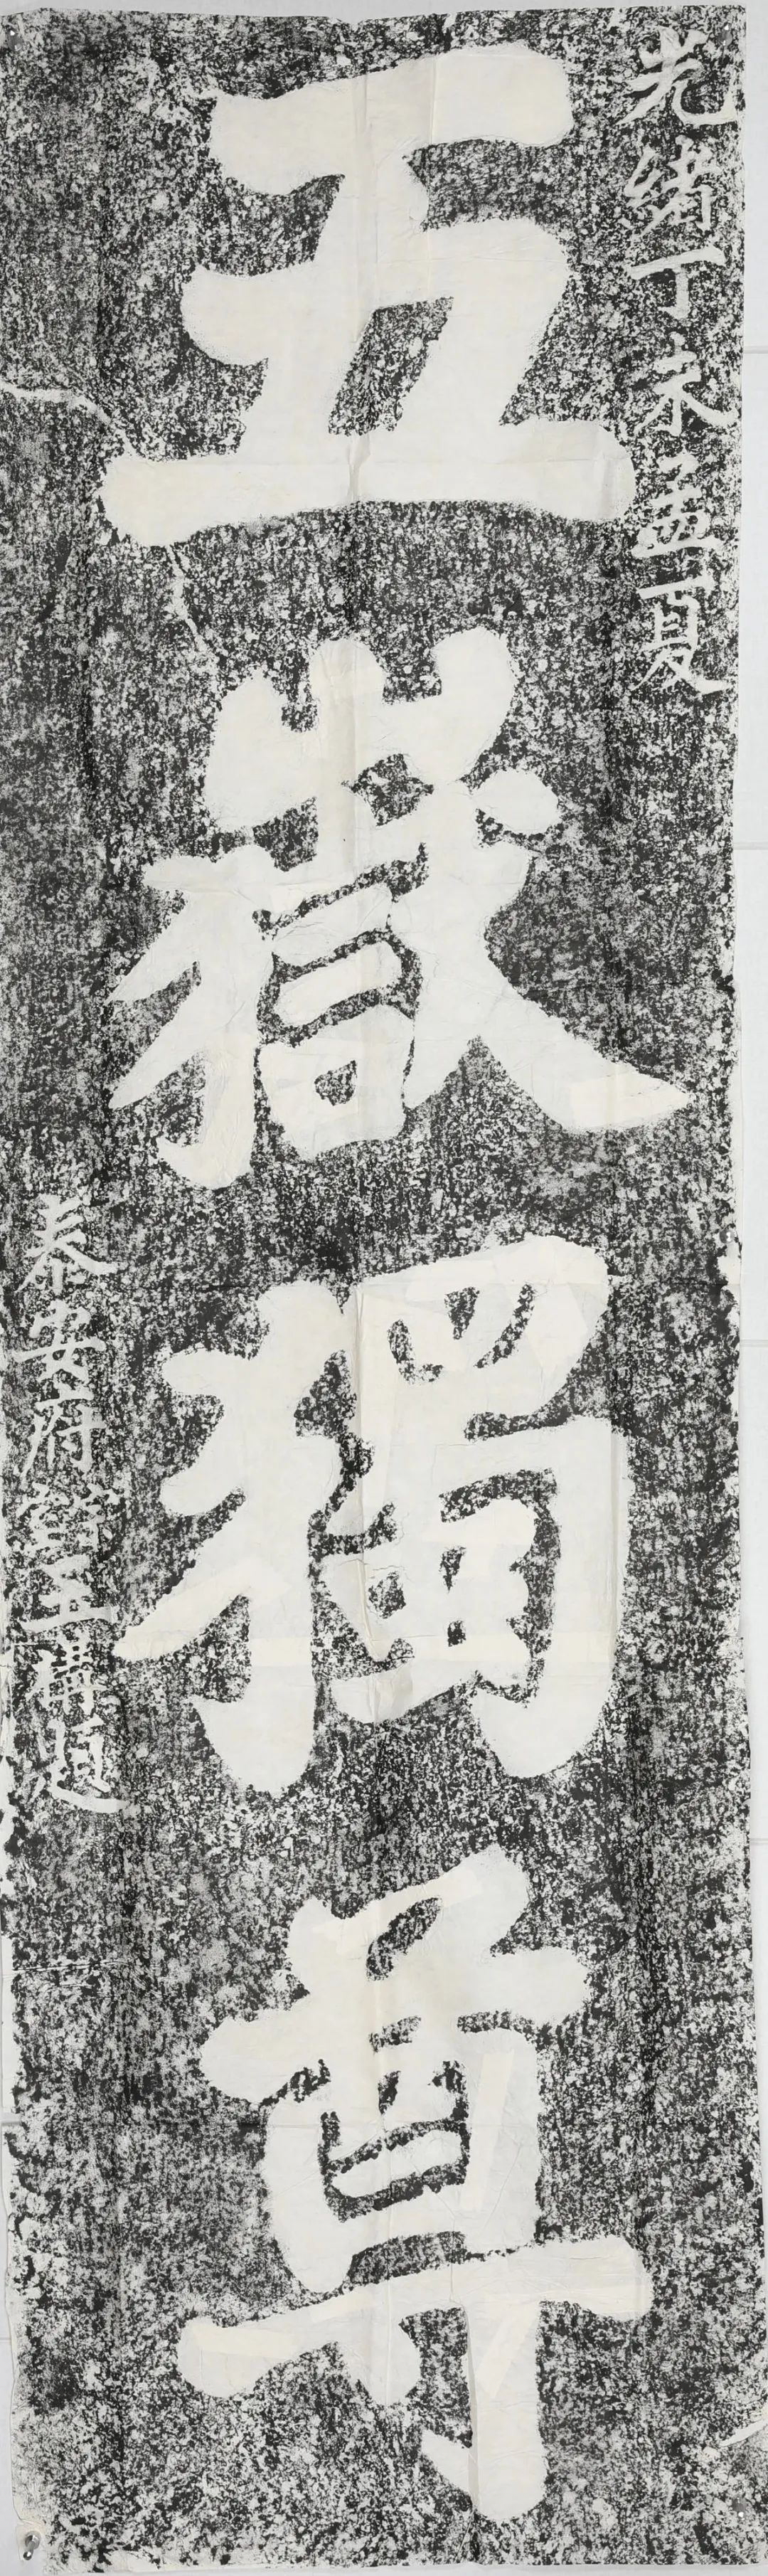 光緒丁未孟夏
五嶽獨尊
泰安府宗室玉構題